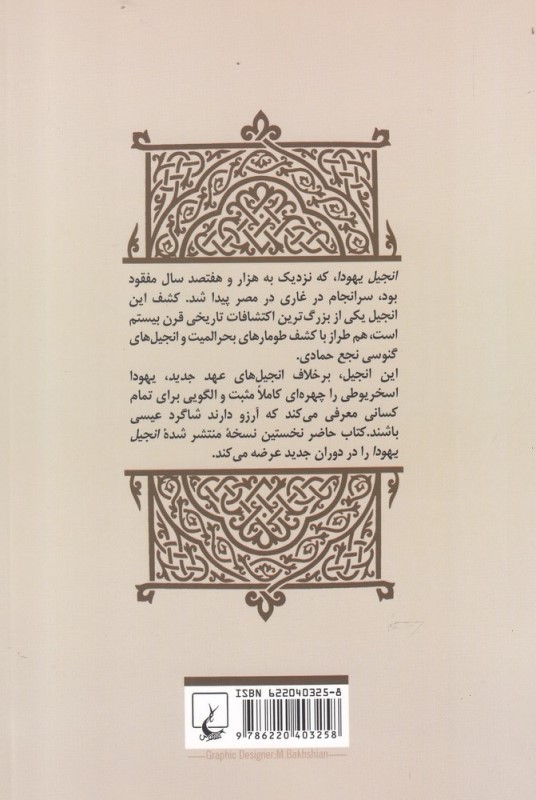 انجیل یهودا، که نزدیک به هزار و هفتصد سال مفقود
بود، سرانجام در غاری در مصر پیدا شد. کشف این
انجیل یکی از بزرگ‌ترین اکتشافات تاریخی قرن بیستم
است، هم طراز با کشف طومارهای بحرالمیت و انجیل‌های
گنوسی نجع حمادی.
این انجیل، برخلاف انجیل‌های عهد جدید، یهودا
اسخریوطی را چهره‌ای کاملاً مثبت و الگویی برای تمام
کسانی معرفی می‌کند که آرزو دارند شاگرد عیسی
باشند. کتاب حاضر نخستین نسخهٔ منتشر شدهٔ انجیل
یهودا را در دوران جدید عرضه می‌کند.
ISBN 622040325-8
9 786220 403258
Graphic Designer:M.Bakhshian